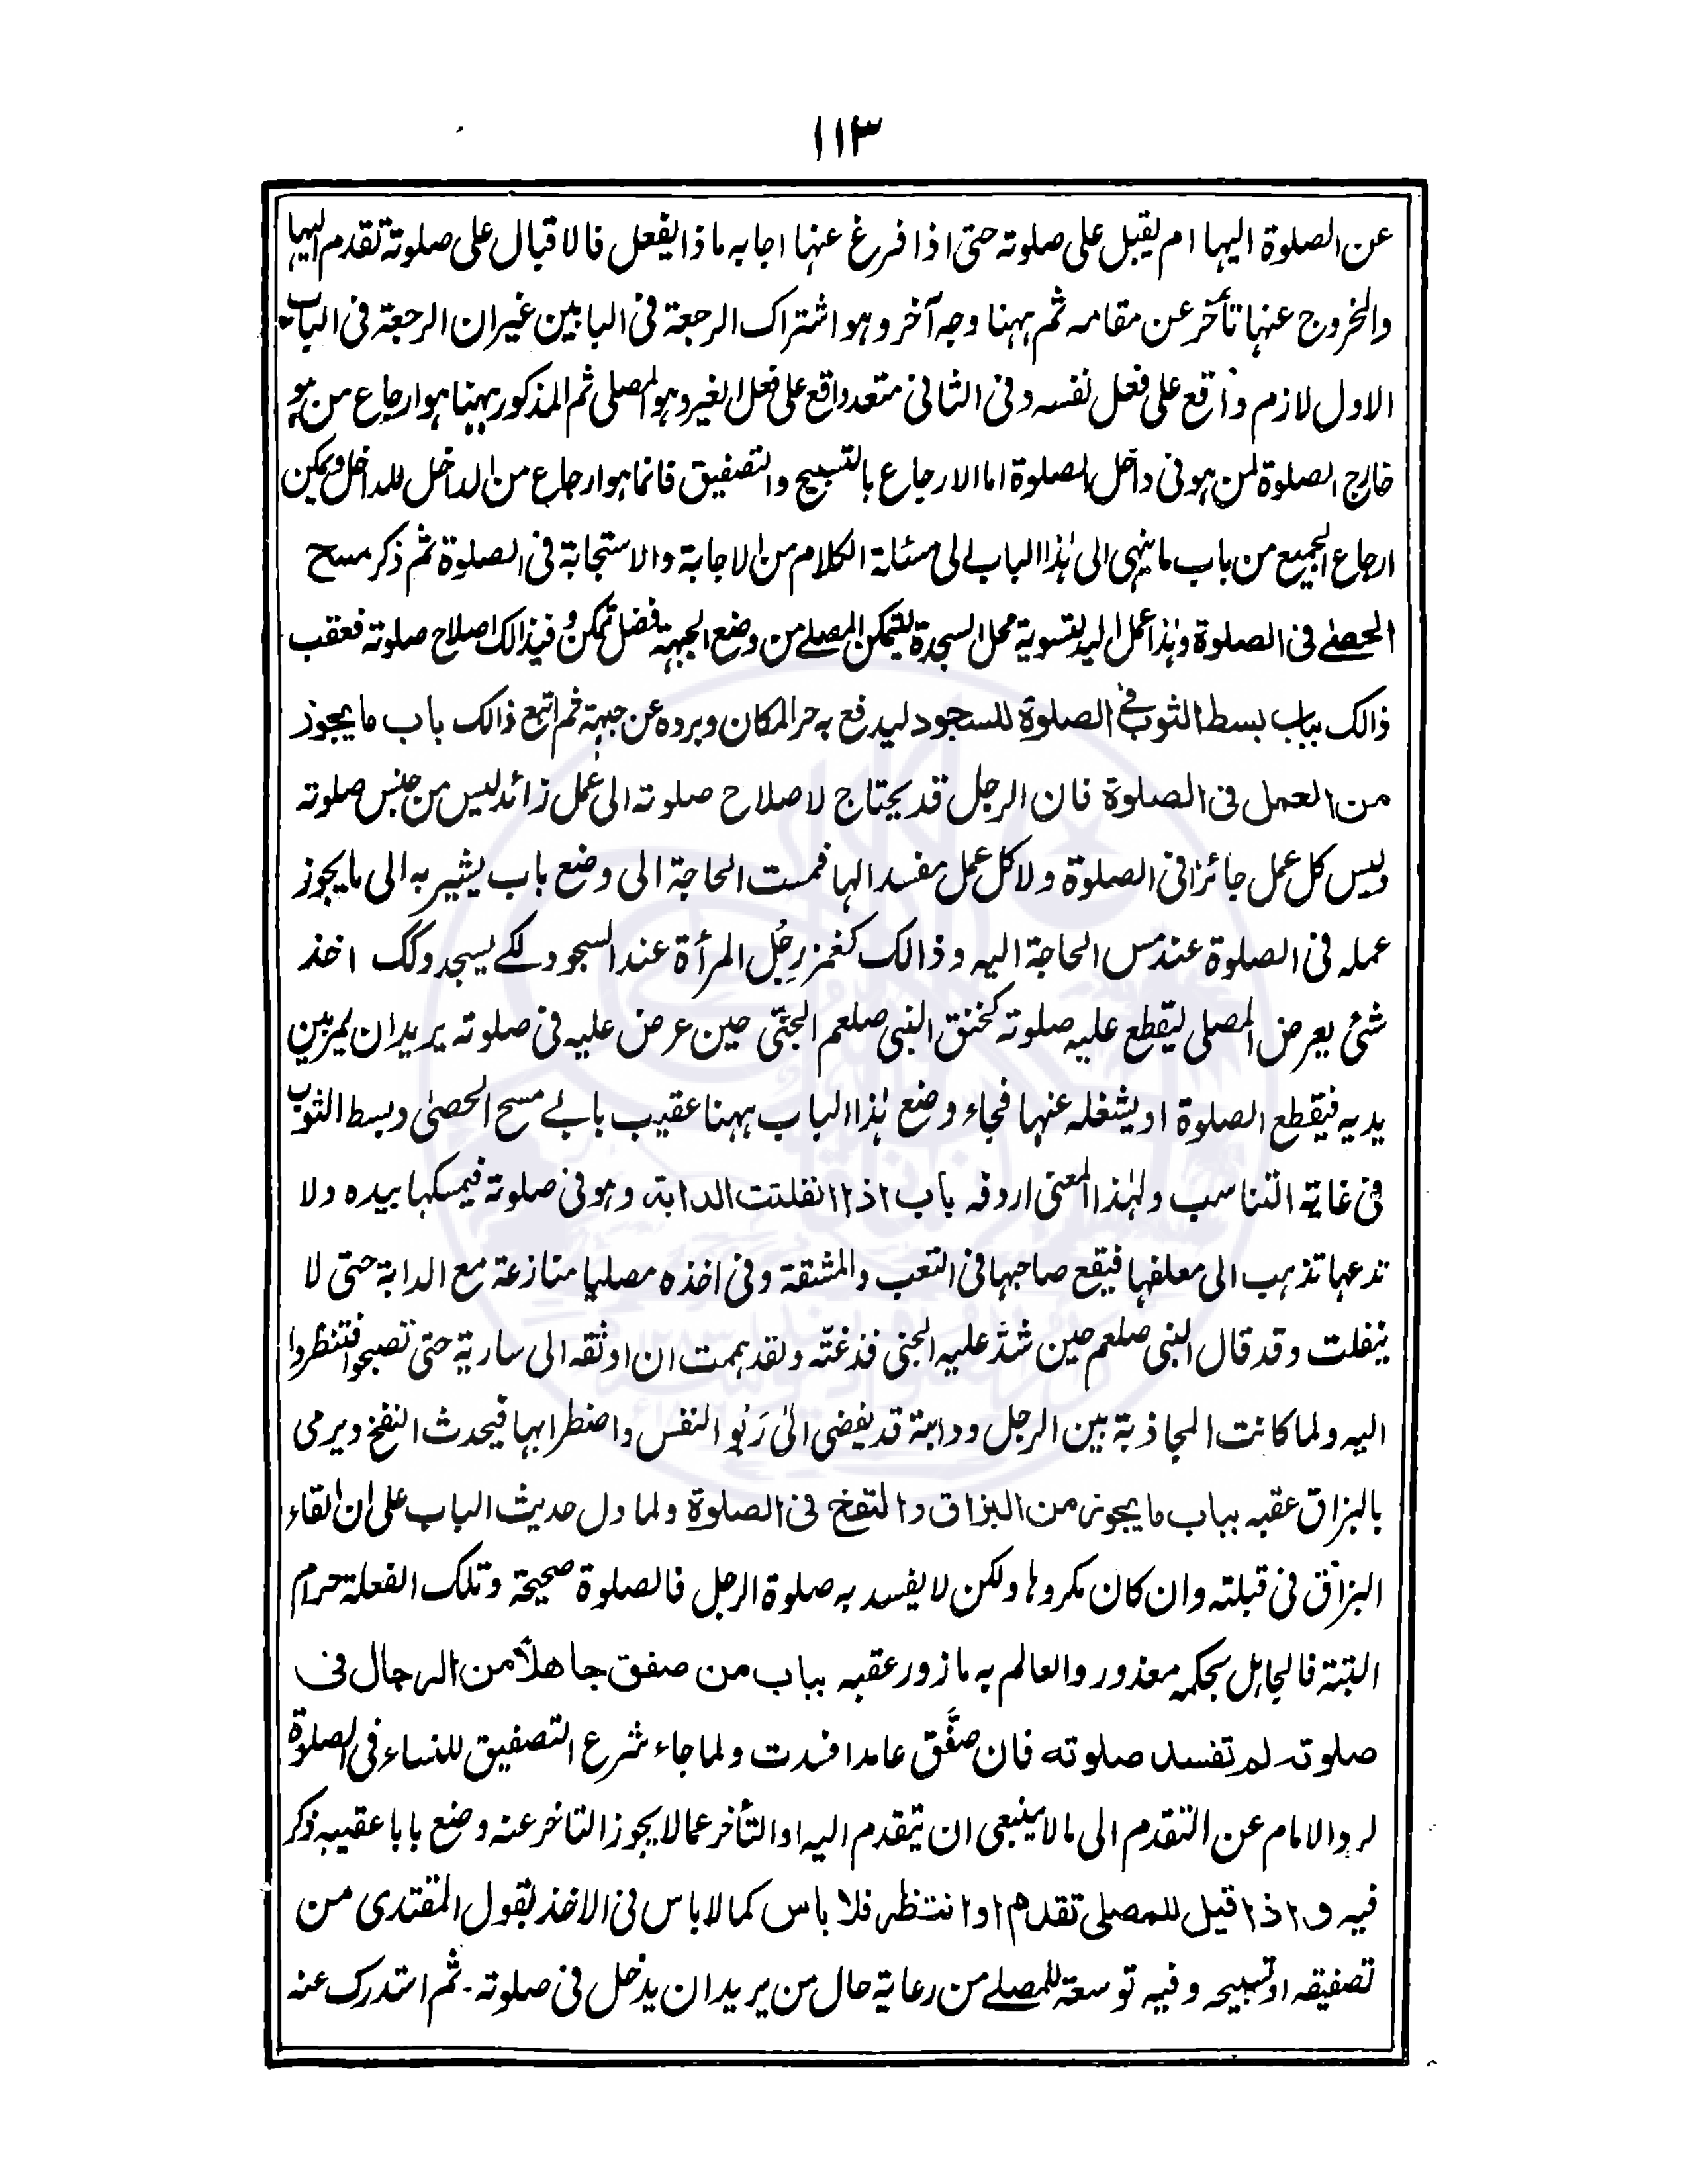 ۱۱۳
عن الصلوة اليها ام يقبل على صلوته حتى اذا فرغ عنها اجابه ماذا يفعل فالاقبال على صلوته تقدم اليها
والخروج عنها تأخر عن مقامه ثم ههنا وجه آخر وهو اشتراك الرجعة فى البابين غير ان الرجعة فى الباب
الاول لازم واقع على فعل نفسه وفى الثانى متعد واقع على فعل الغير وهو المصلى ثم المذكور ههنا هو ارجاع من هو
خارج الصلوة لمن هو فى داخل الصلوة اما الارجاع بالتسبيح والتصفيق فانما هو ارجاع من الداخل للداخل ويمكن
ارجاع الجميع من باب ما ينهى الى هذا الباب الى مسئلة الكلام من الاجابة والاستجابة فى الصلوة ثم ذكر مسح
الحصى فى الصلوة وهذا عمل اليد لتسوية محل السجدة ليتمكن المصلے من وضع الجبهة فضل تمكن وفيذالك اصلاح صلوته فعقب
ذالك بباب بسط الثوب فى الصلوة للسجود ليدفع به حر المكان وبرده عن جبهته ثم اتبع ذالك باب ما يجوز
من العمل فى الصلوة فان الرجل قد يحتاج لاصلاح صلوته الى عمل زائد ليس من جنس صلوته
وليس كل عمل جائزا فى الصلوة ولا كل عمل مفسدا لها فمست الحاجة الى وضع باب يشير به الى ما يجوز
عمله فى الصلوة عند مس الحاجة اليه وذالك كغمز رِجُل المرأة عند السجود لكے يسجد وكك اخذ
شئ يعرض المصلى ليقطع عليه صلوته كخنق النبى صلعم الجنّى حين عرض عليه فى صلوته يريد ان يمر بين
يديه فيقطع الصلوة او يشغله عنها فجاء وضع هذا الباب ههنا عقيب بابے مسح الحصىٰ وبسط الثوب
فى غاية التناسب ولهذا المعنى اردفه باب اذا انفلتت الدابة وهو فى صلوته فيمسكها بيده ولا
تدعها تذهب الى معلفها فيقع صاحبها فى التعب والمشقة وفى اخذه مصليا منازعة مع الدابة حتى لا
ينفلت وقد قال النبى صلعم حين شدّ عليه الجنى فذعتّه ولقد هممت ان اوثقه الى سارية حتى تصبحوا فتنظروا
اليه ولما كانت المجاذبة بين الرجل ودابته قد يفضى الىٰ رَبُو النفس واضطرابها فيحدث النفخ ويرمى
بالبزاق عقبه بباب ما يجوز من البزاق والنفخ فى الصلوة ولما دل حديث الباب على ان القاء
البزاق فى قبلته وان كان مكروها ولكن لا يفسد به صلوة الرجل فالصلوة صحيحة وتلك الفعلة حرام
البتة فالجاهل بحكمه معذور والعالم به مازور عقبه بباب من صفق جاهلًا من الرجال فى
صلوته لم تفسد صلوته فان صفَّق عامدا فسدت ولما جاء شرع التصفيق للنساء فى الصلوة
لردِ الامام عن التقدم الى ما لا ينبغى ان يتقدم اليه او التأخر عما لا يجوز التاخر عنه وضع بابا عقيبه ذكر
فيه و اذا قيل للمصلى تقدم او انتظر فلا باس كما لا باس فى الاخذ بقول المقتدى من
تصفيقه او تسبيحه وفيه توسعة للمصلے من رعاية حال من يريد ان يدخل فى صلوته۔ ثم استدرك عنه